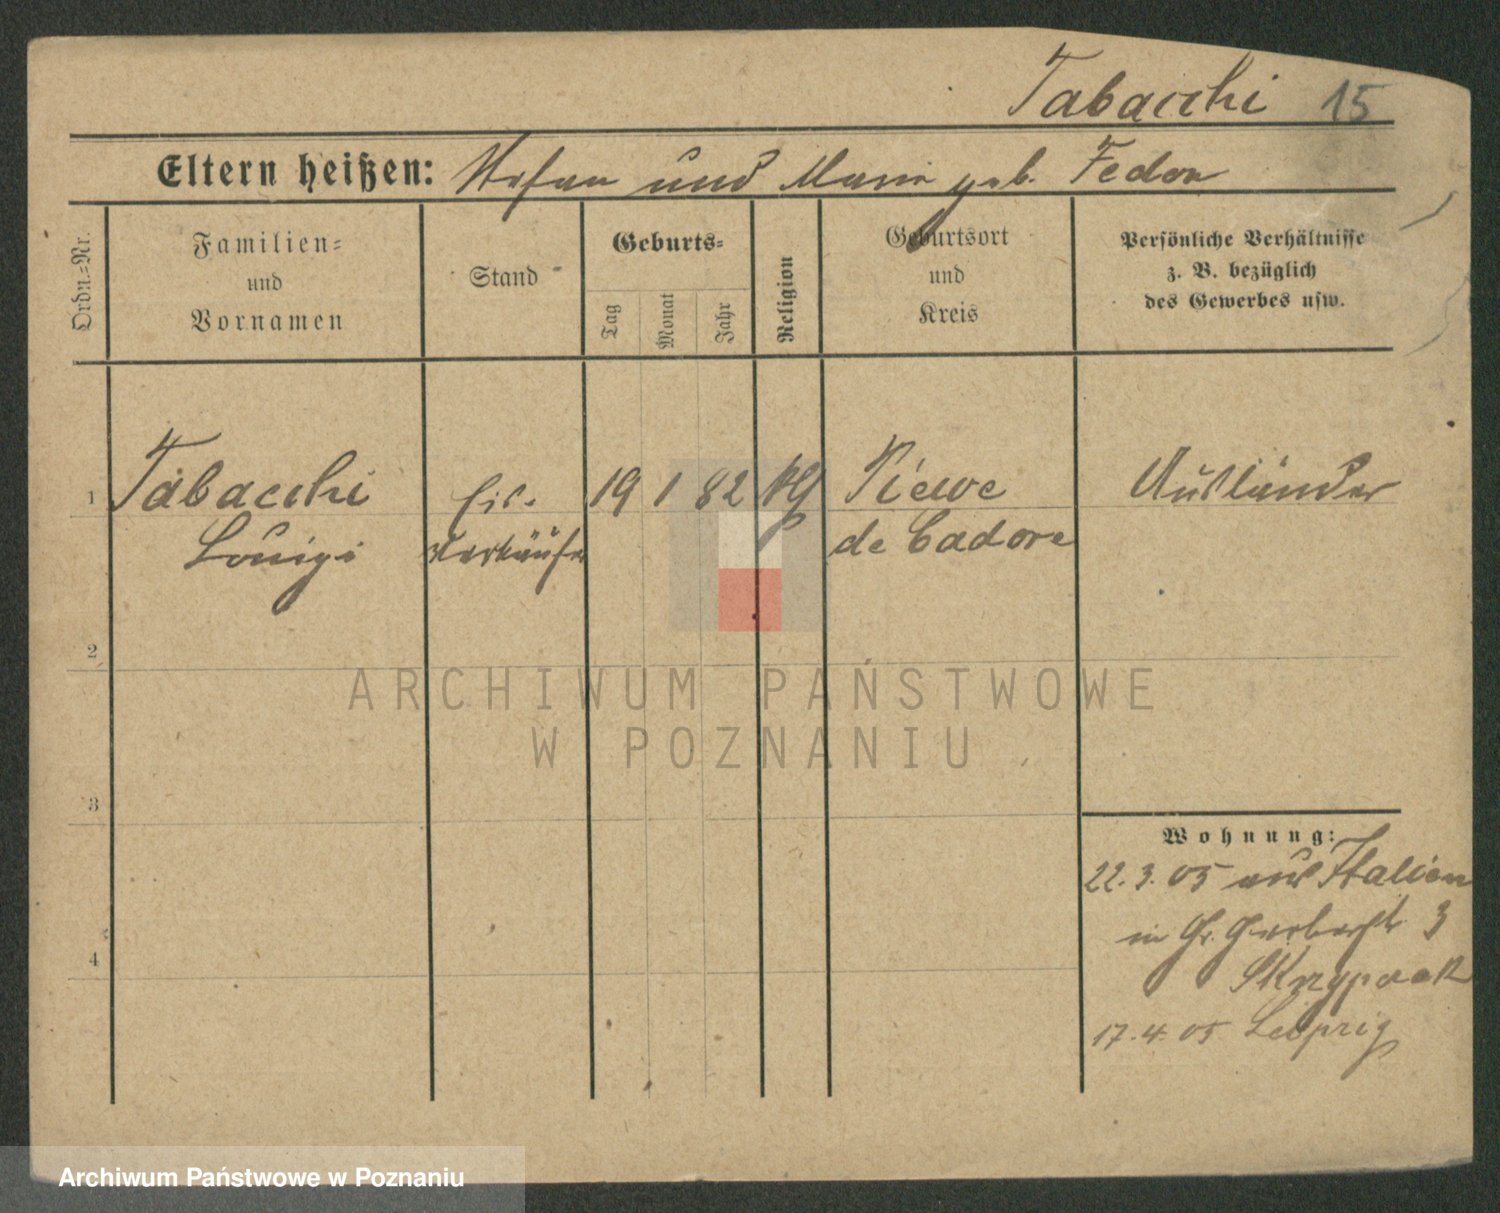 Tabacchi 15
Eltern heißen: Stefan und Marie geb. Fedon
Ordn.=Nr.
Familien=
und
Vornamen
Stand
Geburts=
Tag
Monat
Jahr
Religion
Geburtsort
und
Kreis
Persönliche Verhältnisse
z. B. bezüglich
des Gewerbes usw.
1 Tabacchi Eis- 19 1 82 Piewe Ausländer
Louigi verkäufer de Cadore
2
ARCHIWUM PAŃSTWOWE
W POZNANIU
3
Wohnung:
22.3.05 aus Italien
in Gr. Gerberstr 3
4
Skrzypczak
17.4.05 Leipzig
Archiwum Państwowe w Poznaniu